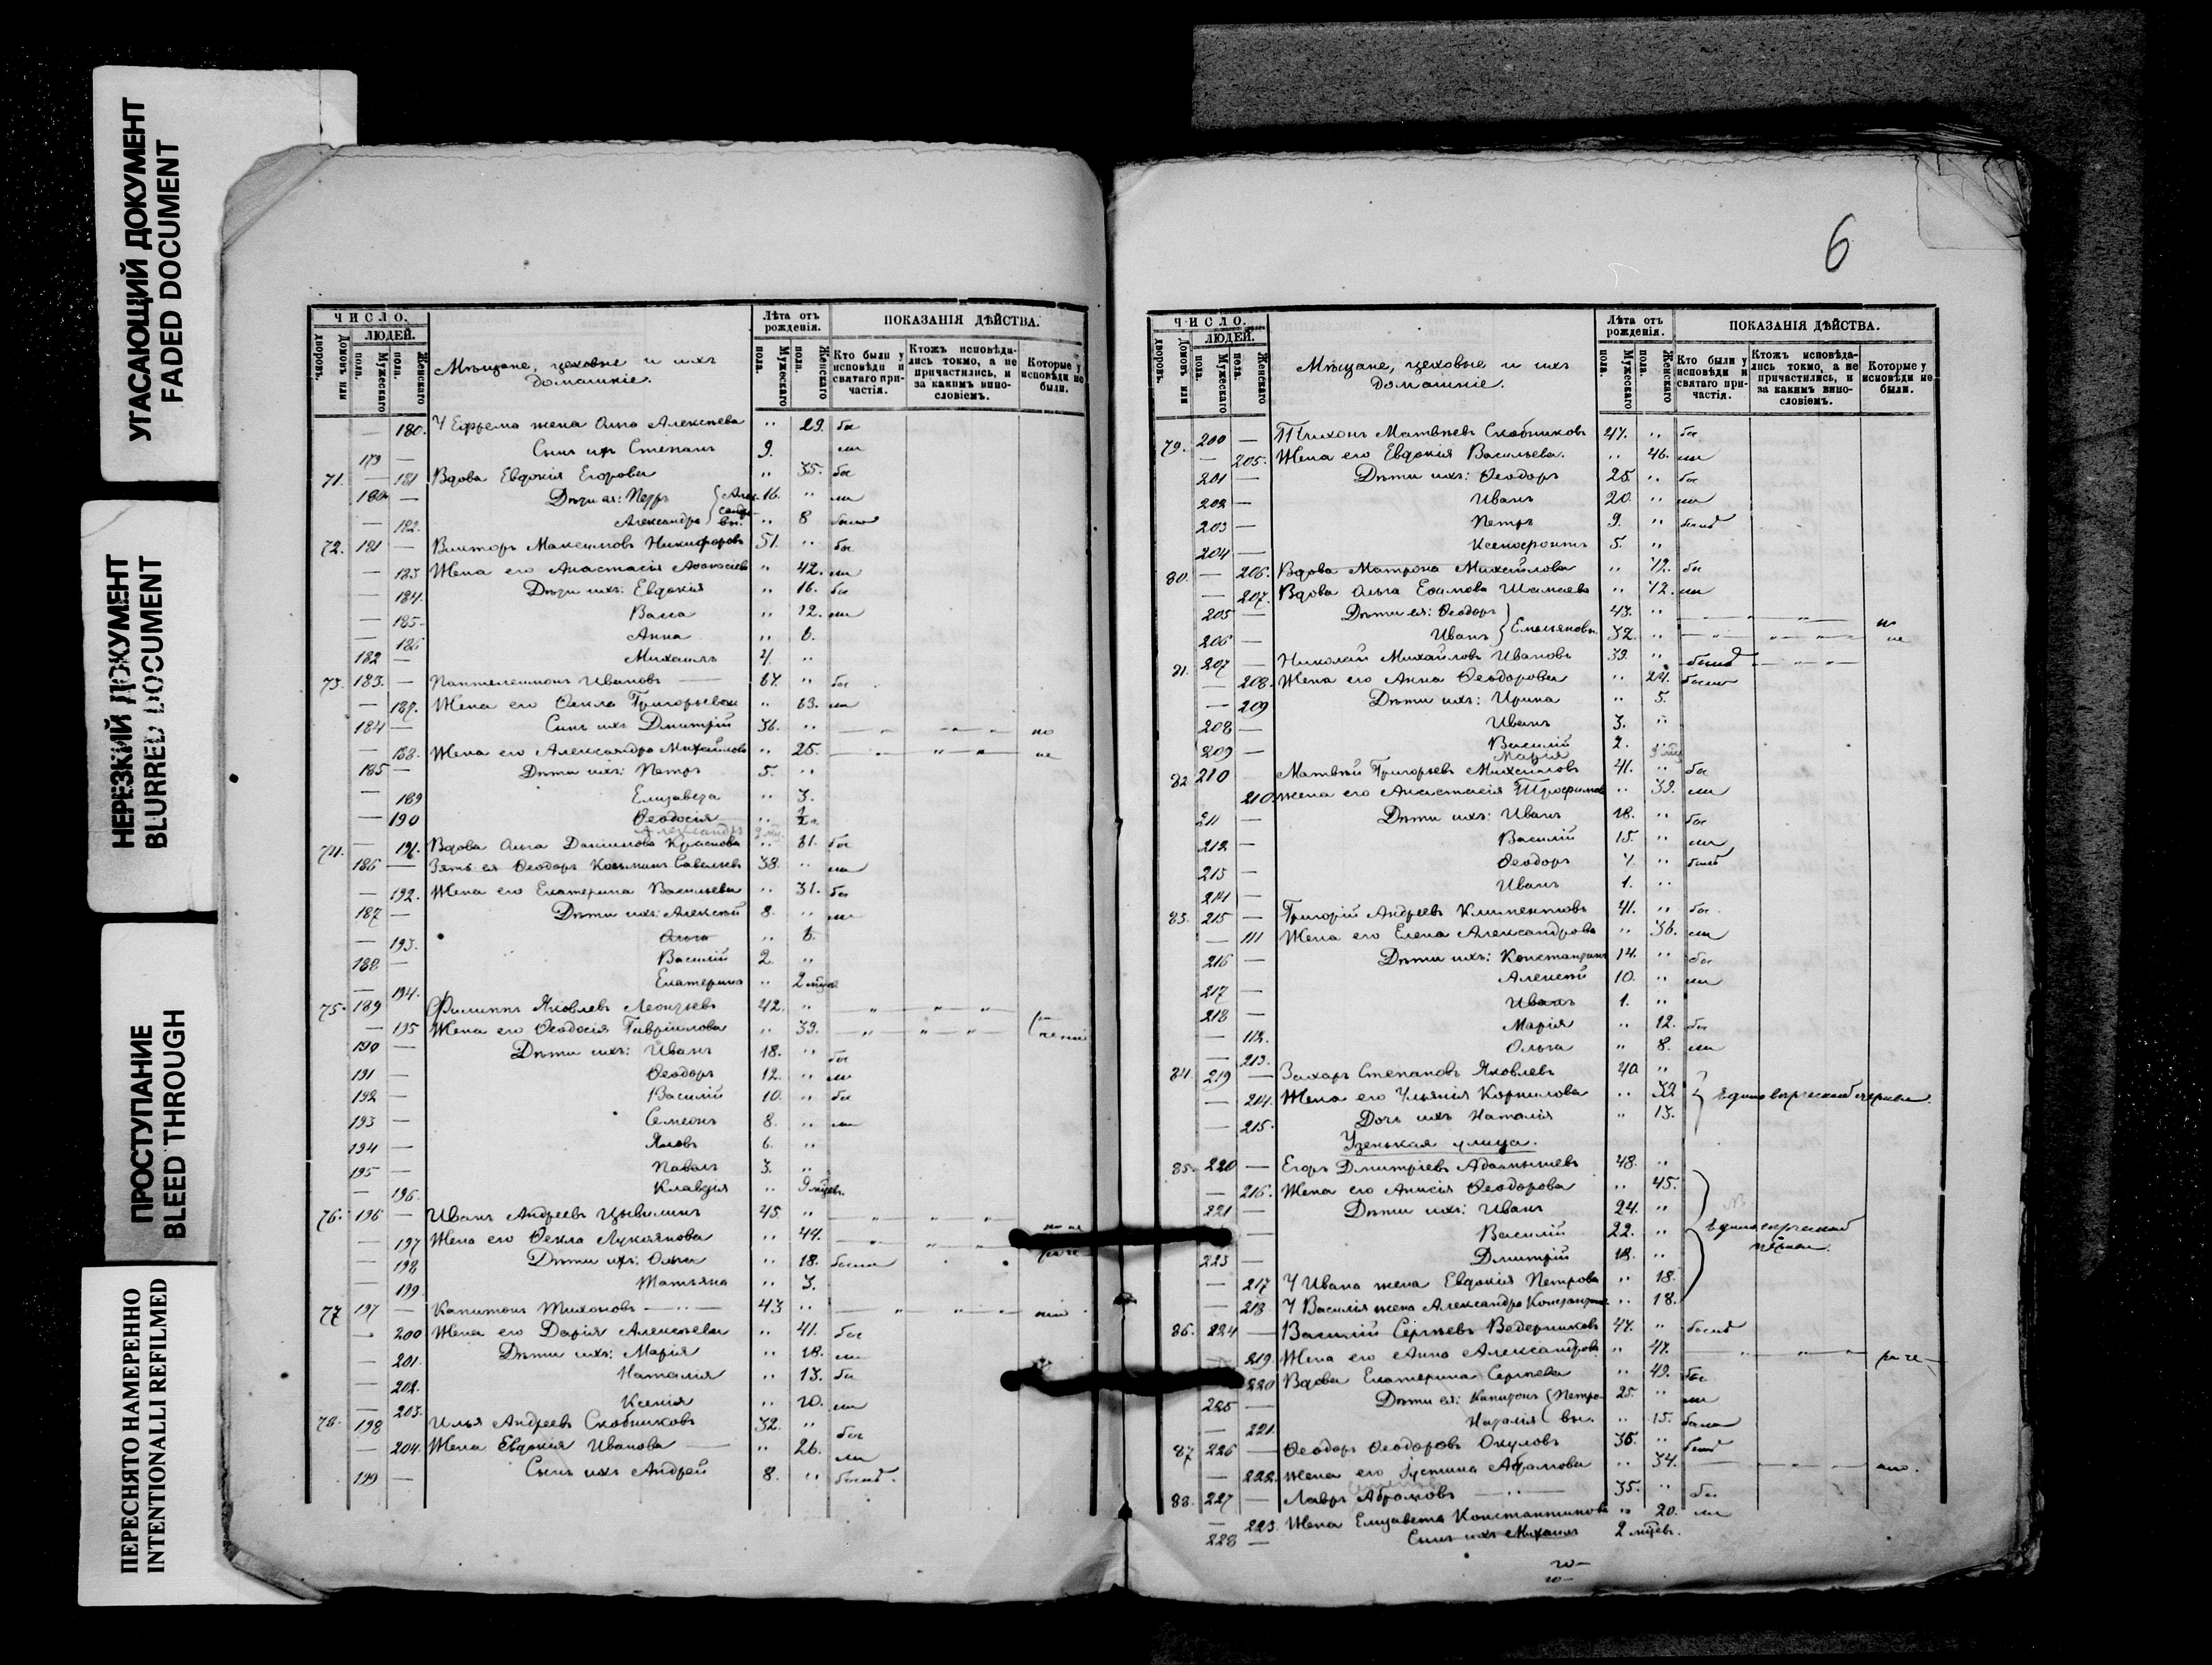 УГАСАЮЩИЙ ДОКУМЕНТ
FADED DOCUMENT
НЕРЕЗКИЙ ДОКУМЕНТ
BLURRED DOCUMENT
ПРОСТУПАНИЕ
BLEED THROUGH
ПЕРЕСНЯТО НАМЕРЕННО
INTENTIONALLI REFILMED
ЧИСЛО.
ЛЮДЕЙ.
Домовъ или дворовъ.
Мужескаго пола.
Женскаго пола.
Мѣщане, цеховые и ихъ
домашніе.
Лѣта отъ рожденія.
Мужескаго пола.
Женскаго пола.
ПОКАЗАНІЯ ДѢЙСТВА.
Кто были у исповѣди и святаго причастія.
Ктожъ исповѣдались токмо, а не причастились, и за какимъ винословіемъ.
Которые у исповѣди не были.
— 180. У Ефрема жена Ольга Алексѣева " 29. бы
179 — Сынъ ихъ Степанъ 9. ли
71. — 181 Вдова Евдокія Егорова " 35. бы
180 — Дѣти ея: Петръ Алек- 16. " ли
— 182. Александра сандровы. " 8 была
72. 181 — Викторъ Максимовъ Никифоровъ 51. " бы
— 183 Жена его Анастасія Аѳанасіева " 42. ли
— 184. Дѣти ихъ: Евдокія " 16. бы
— 185 Васса " 12. ли
— 186 Анна " 6.
182 — Михаилъ 4. "
73. 183. — Пантелеимонъ Ивановъ — 67. " бы
— 187. Жена его Ѳекла Григорьева " 63. ли
184 — Сынъ ихъ Дмитрій 36. " — " — " — " — но
— 188. Жена его Александра Михайлова " 25. — " — " — не
185 — Дѣти ихъ: Петръ 5. "
— 189 Елизавета " 3.
— 190 Ѳеодосія "
Александръ 2 мц.
74. — 191. Вдова Ольга Даніилова Краснова " 81. бы
186 — Зять ея Ѳеодоръ Козьминъ Савельевъ 38. " ли
— 192. Жена его Екатерина Васильева " 31. бы
187 — Дѣти ихъ: Алексѣй 8. " ли
— 193. Ольга " 6.
188 — Василій 2. "
— 194. Екатерина " 2 мца
75. 189 Филиппъ Яковлевъ Леонтьевъ 42. " — " — " — " —
— 195 Жена его Ѳеодосія Гавріилова " 39. " — " — "
190 — Дѣти ихъ: Иванъ 18. " бы
191 — Ѳеодоръ 12. " ли
192 — Василій 10. " бы
193 — Семеонъ 8. " ли
194 — Яковъ 6. "
195 — Павелъ 3. "
— 196. Клавдія " 9 мцевъ.
76. 196 — Иванъ Андреевъ Цывилинъ 45. " — " — " — "
— 197 Жена его Ѳекла Лукоянова " 44. — " — " — "
— 198 Дѣти ихъ: Ольга " 18. была
— 199 Татьяна " 3.
77 197 — Капитонъ Тихоновъ — " — 43 " — " — " — "
— 200 Жена его Дарія Алексѣева " 41. бы
— 201. Дѣти ихъ: Марія " 18. ли
— 202. Наталія " 13. бы
— 203. Ксенія " 10. ли
78. 198 Илья Андреевъ Скобниковъ 32. " бы
— 204. Жена Евдокія Иванова — " 26. ли
199 — Сынъ ихъ Андрей 8. " былъ.
6
ЧИСЛО.
ЛЮДЕЙ.
Домовъ или дворовъ.
Мужескаго пола.
Женскаго пола.
Мѣщане, цеховые и ихъ
домашніе.
Лѣта отъ рожденія.
Мужескаго пола.
Женскаго пола.
ПОКАЗАНІЯ ДѢЙСТВА.
Кто были у исповѣди и святаго причастія.
Ктожъ исповѣдались токмо, а не причастились, и за какимъ винословіемъ.
Которые у исповѣди не были.
79. 200 — Тихонъ Матвѣевъ Скобниковъ 47. " бы
— 205. Жена его Евдокія Васильева. " 46. ли
201 — Дѣти ихъ: Ѳеодоръ 25. " бы
202 — Иванъ 20. " ли
203 — Петръ 9. " былъ
204 — Ксенофонтъ 5. "
80. — 206. Вдова Матрона Михайлова " 72. бы
— 207. Вдова Ольга Ефимова " 72. ли
205 — Дѣти ея: Ѳеодоръ 43. " — " — " — но
206 — Иванъ Емельяновы. 32. " — " — " — " — не
81. 207 — Николай Михайловъ Ивановъ 39. " былъ — " — " —
— 208. Жена его Анна Ѳеодорова " 24. была
— 209 Дѣти ихъ: Ирина " 5.
208 — Иванъ 3. "
209 — Василій 2. "
Марія
82 210 Матвѣй Григорьевъ Михайловъ 41. " бы
210. Жена его Анастасія Трофимова " 39. ли
211 — Дѣти ихъ: Иванъ 18. " бы
212 — Василій 15. " ли
213 — Ѳеодоръ 7. " былъ
214 — Иванъ 1. "
83. 215 — Григорій Андреевъ Климентовъ 41. " бы
— 111 Жена его Елена Александрова " 36. ли
216 — Дѣти ихъ: Константинъ 14. " бы
217 — Алексѣй 10. " ли
218 — Иванъ 1. "
— 112. Марія " 12. бы
— 213. Ольга " 8. ли
84. 219 — Захаръ Степановъ Яковлевъ 40. "
— 214. Жена его Ульянія Корнилова " 39 Единовѣрческой церкви.
— 215. Дочь ихъ Наталія " 13.
Узенькая улица.
85. 220 — Егоръ Дмитріевъ Адамышевъ 48. "
— 216. Жена его Анисія Ѳеодорова " 45.
221 — Дѣти ихъ: Иванъ 24. "
— Василій 22. " Единоверческой
223 — Дмитрій 18. " церкви.
— 217 У Ивана жена Евдокія Петрова " 18.
— 218 У Василія жена Александра " 18.
86. 224 — Василій Сергѣевъ Ведерниковъ 47. " былъ
— 219. Жена его Анна Александрова " 47. — " — " — "
220 Вдова Екатерина Сергѣева " 49. бы
225 — Дѣти ея: Капитонъ Петро- 25. " ли
— 221. Наталія вы. " 15. была
87 226 — Ѳеодоръ Ѳеодоровъ Окуловъ 36. " былъ
— 222. Жена его Іустина Абрамова " 34. — " — " — "
88. 227 — Лавръ Абрамовъ — " — 35. " бы
— 223. Жена Елизавета Константинова " 20. ли
228 — Сынъ ихъ Михаилъ 2 мцевъ.